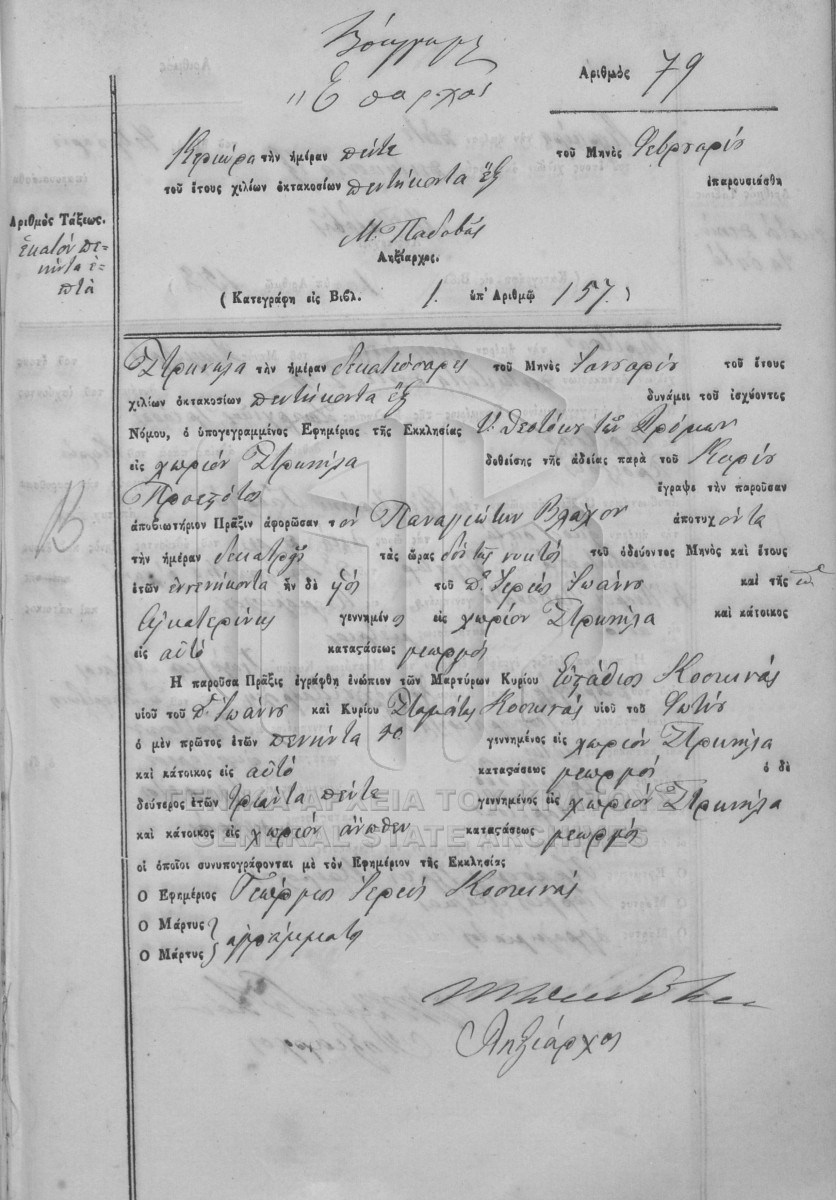 Ἔπαρχος
Αριθμός 79
Κερκύρα τὴν ἡμέραν πέντε τοῦ Μηνὸς Φεβρουαρίου
τοῦ ἔτους χιλίων ὀκτακοσίων πεντήκοντα ἓξ ἐπαρουσιάσθη
Αριθμὸς Τάξεως.
ἑκατὸν πε-
νήντα ἑ-
πτὰ
Μ. Παδοβᾶς
Ληξίαρχος.
( Κατεγράφη εἰς Βιβλ. 1. ὑπ' Αριθμῷ 157. )
Στρινίλα τὴν ἡμέραν δεκατέσσαρες τοῦ Μηνὸς Ἰανουαρίου τοῦ ἔτους
χιλίων ὀκτακοσίων πεντήκοντα ἓξ δυνάμει τοῦ ἰσχύοντος
Νόμου, ὁ ὑπογεγραμμένος Εφημέριος τῆς Εκκλησίας Υ. Θεοτόκου τῶν
εἰς χωρίον Στρινίλα δοθείσης τῆς ἀδείας παρὰ τοῦ Κυρίου
Προεστῶτος ἔγραψε τὴν παροῦσαν
ἀποβιωτήριον Πρᾶξιν ἀφορῶσαν τὸν Παναγιώτην Βλάχον ἀποτυχόντα
τὴν ἡμέραν δεκατρεῖς τὰς ὥρας τῆς νυκτὸς τοῦ ὁδεύοντος Μηνὸς καὶ ἔτους
ἐτῶν ἐννενήκοντα ἦν δὲ υἱὸς τοῦ Ἱερέως Ἰωάννου καὶ τῆς
Αἰκατερίνης γεννημένος εἰς χωρίον Στρινίλα καὶ κάτοικος
εἰς αὐτὸ καταςάσεως γεωργὸς
Η παροῦσα Πρᾶξις ἐγράφθη ἐνώπιον τῶν Μαρτύρων Κυρίου Εὐστάθιος Κοσκινᾶς
υἱοῦ τοῦ Ἰωάννου καὶ Κυρίου Σταμάτης Κοσκινᾶς υἱοῦ τοῦ Φωτίου
ὁ μὲν πρῶτος ἐτῶν πενήντα γεννημένος εἰς χωρίον Στρινίλα
καὶ κάτοικος εἰς αὐτὸ καταςάσεως γεωργὸς ὁ δὲ
δεύτερος ἐτῶν τριάντα πέντε γεννημένος εἰς χωρίον Στρινίλα
καὶ κάτοικος εἰς χωρίον ἄνωθεν καταςάσεως γεωργὸς
οἱ ὁποῖοι συνυπογράφονται μὲ τὸν Εφημέριον τῆς Εκκλησίας
Ο Εφημέριος Γεώργιος Ἱερεὺς Κοσκινᾶς
Ο Μάρτυς
Ο Μάρτυς ἀγράμματοι
Ληξίαρχος
ΓΕΝΙΚΑ ΑΡΧΕΙΑ ΤΟΥ ΚΡΑΤΟΥΣ
GENERAL STATE ARCHIVES